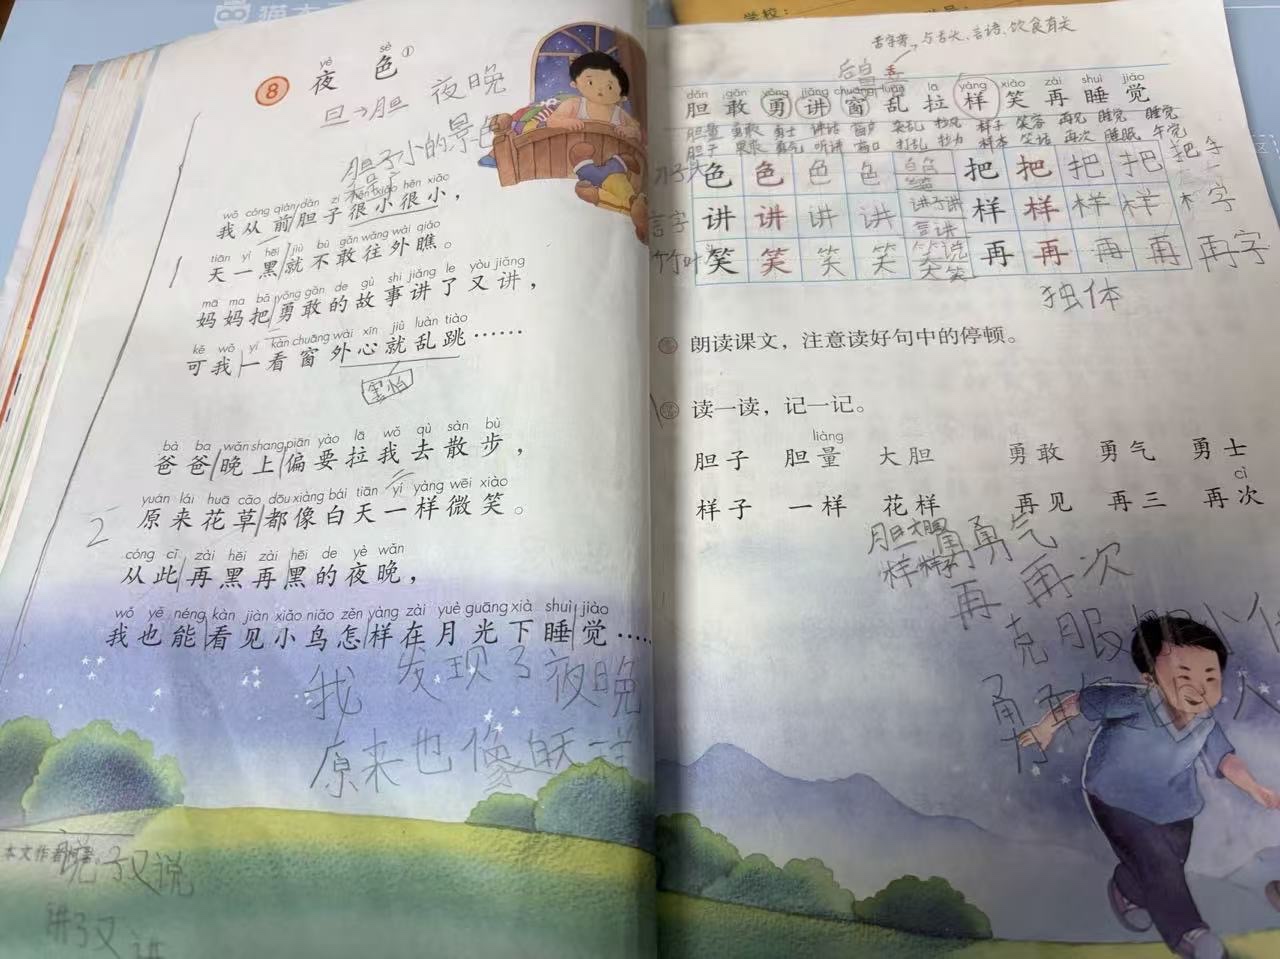 8
yè sè
夜 色①
旦→胆 夜晚
胆子小的景色
wǒ cóng qián dǎn zi hěn xiǎo hěn xiǎo
我从前胆子很小很小，
tiān yì hēi jiù bù gǎn wǎng wài qiáo
天一黑就不敢往外瞧。
mā ma bǎ yǒng gǎn de gù shi jiǎng le yòu jiǎng
妈妈把勇敢的故事讲了又讲，
kě wǒ yí kàn chuāng wài xīn jiù luàn tiào
可我一看窗外心就乱跳……
害怕
1
bà ba wǎn shang piān yào lā wǒ qù sàn bù
爸爸晚上偏要拉我去散步，
yuán lái huā cǎo dōu xiàng bái tiān yí yàng wēi xiào
原来花草都像白天一样微笑。
2
cóng cǐ zài hēi zài hēi de yè wǎn
从此再黑再黑的夜晚，
wǒ yě néng kàn jiàn xiǎo niǎo zěn yàng zài yuè guāng xià shuì jiào
我也能看见小鸟怎样在月光下睡觉……
我 发现了夜晚
原来也像白天一样
本文作者
说了又说
讲了又讲
学校：
舌字旁→与舌头、言语、饮食有关
dǎn gǎn yǒng jiǎng chuāng luàn lā yàng xiào zài shuì jiào
胆 敢 勇 讲 窗 乱 拉 样 笑 再 睡 觉
胆量 勇敢 勇士 讲话 窗户 杂乱 样子 笑容 再见 睡觉 睡觉
胆子 果敢 勇气 听讲 窗口 打乱 拉力 样本 笑话 再次 睡眠 午觉
色 色 色 色 白色 把 把 把 把 把字
言字 讲 讲 讲 讲 言讲 样 样 样 样
笑 笑 笑 笑 笑说 大笑 再 再 再 再 再字
独体
朗读课文，注意读好句中的停顿。
读一读，记一记。
liàng
胆子 胆量 大胆 勇敢 勇气 勇士
cì
样子 一样 花样 再见 再三 再次
勇气
再 再次
克服胆小
勇敢的人